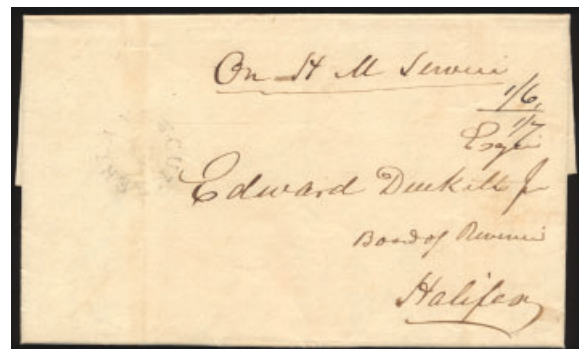 On H M Service
1/6
1/7
Esqr
Edward Duckett Jr
Board of Revenue
Halifax